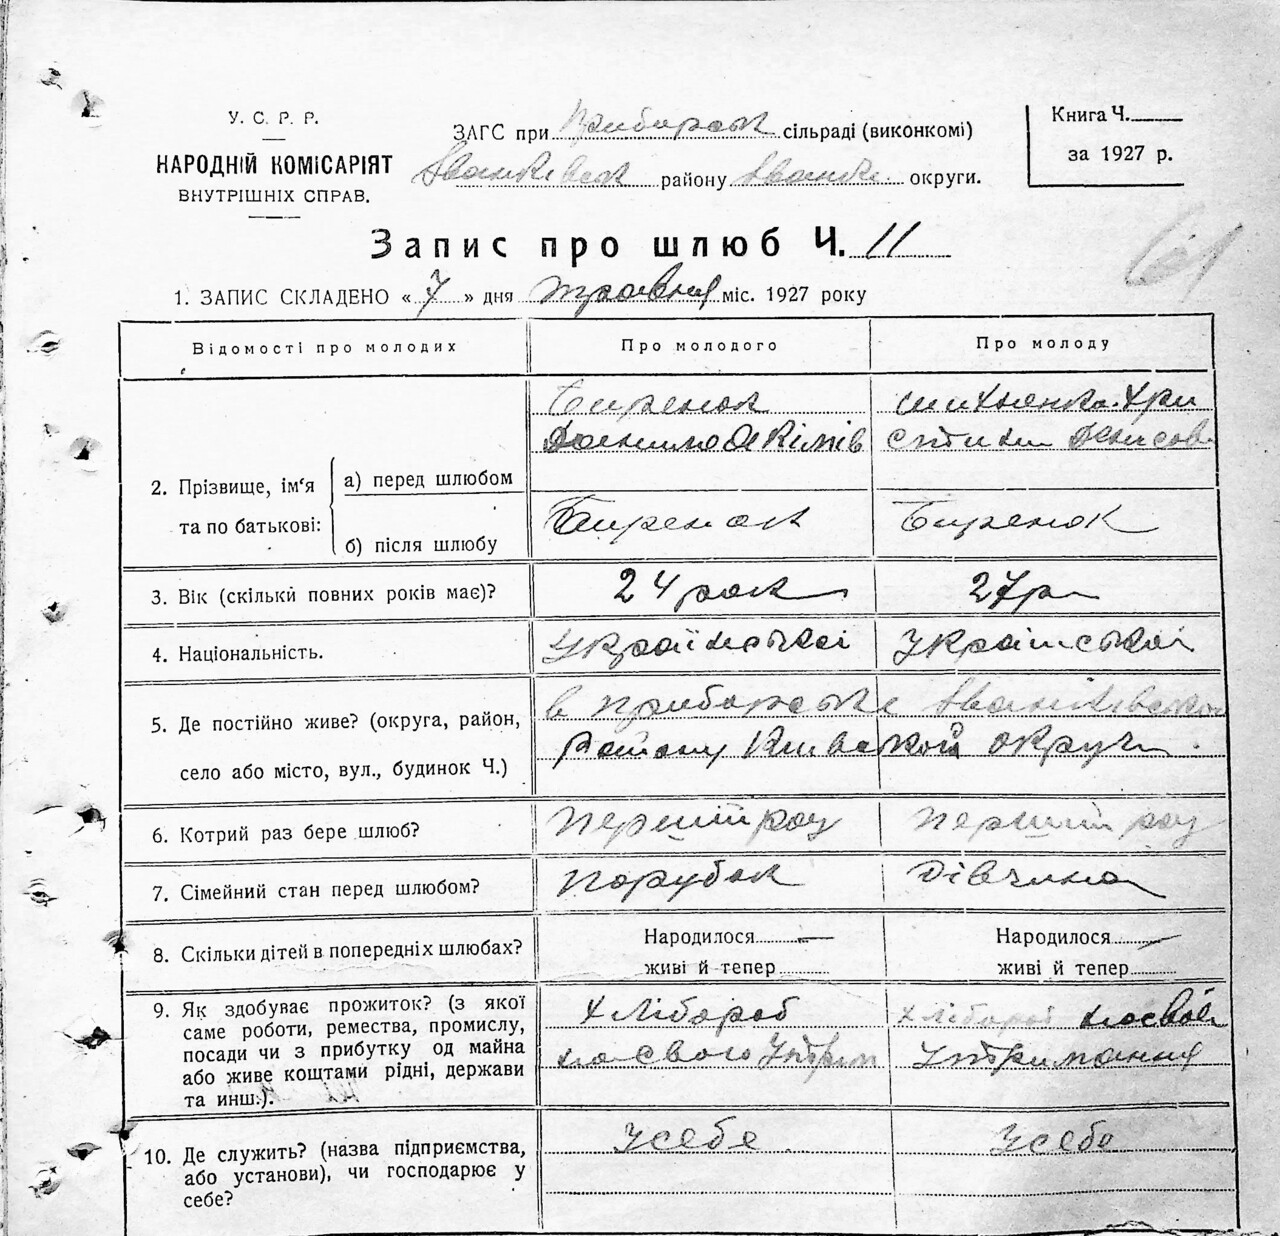 У. С. Р. Р.
НАРОДНІЙ КОМІСАРІЯТ
ВНУТРІШНІХ СПРАВ.
ЗАГС при Прибарськ сільраді (виконкомі)
Іванківськ району Іванк. округи.
Книга Ч.
за 1927 р.
Запис про шлюб Ч. 11
61
1. ЗАПИС СКЛАДЕНО « 7 » дня травня міс. 1927 року
Відомості про молодих
Про молодого
Про молоду
2. Прізвище, ім'я та по батькові:
а) перед шлюбом
Биренок
Данило Якімів
Христини Денисов
б) після шлюбу
Биренок
Биренок
3. Вік (скільки повних років має)?
24 рок
27 р
4. Національність.
Українській
Українській
5. Де постійно живе? (округа, район,
село або місто, вул., будинок Ч.)
в Прибарське Іванківського
Району Київської округи.
6. Котрий раз бере шлюб?
Перший раз
Перший раз
7. Сімейний стан перед шлюбом?
Парубок
Дівчина
8. Скільки дітей в попередніх шлюбах?
Народилося —
живі й тепер
Народилося —
живі й тепер
9. Як здобуває прожиток? (з якої
саме роботи, ремества, промислу,
посади чи з прибутку од майна
або живе коштами рідні, держави
та инш.).
Хлібороб
на свого Утрим
Хлібороб на свой
Утримання
10. Де служить? (назва підприємства,
або установи), чи господарює у
себе?
У себе
У себе